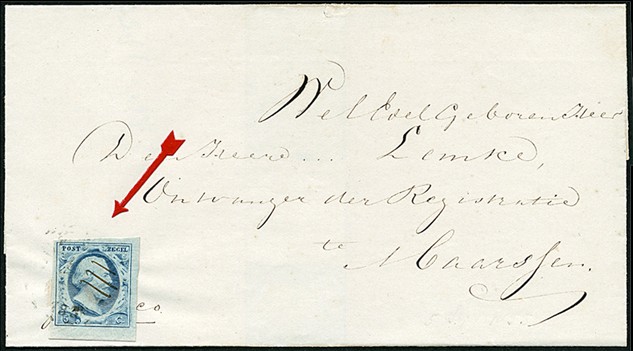 WelEdelGeboren Heer
Den Heere... Lemke,
Ontvanger der Registratie
te Maarssen.
POST ZEGEL
5 C
co.